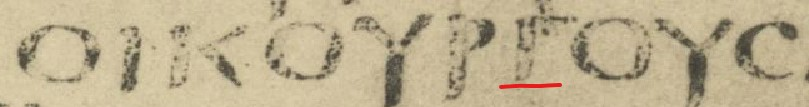 ΟΙΚΟΥΡΓΟΥϹ